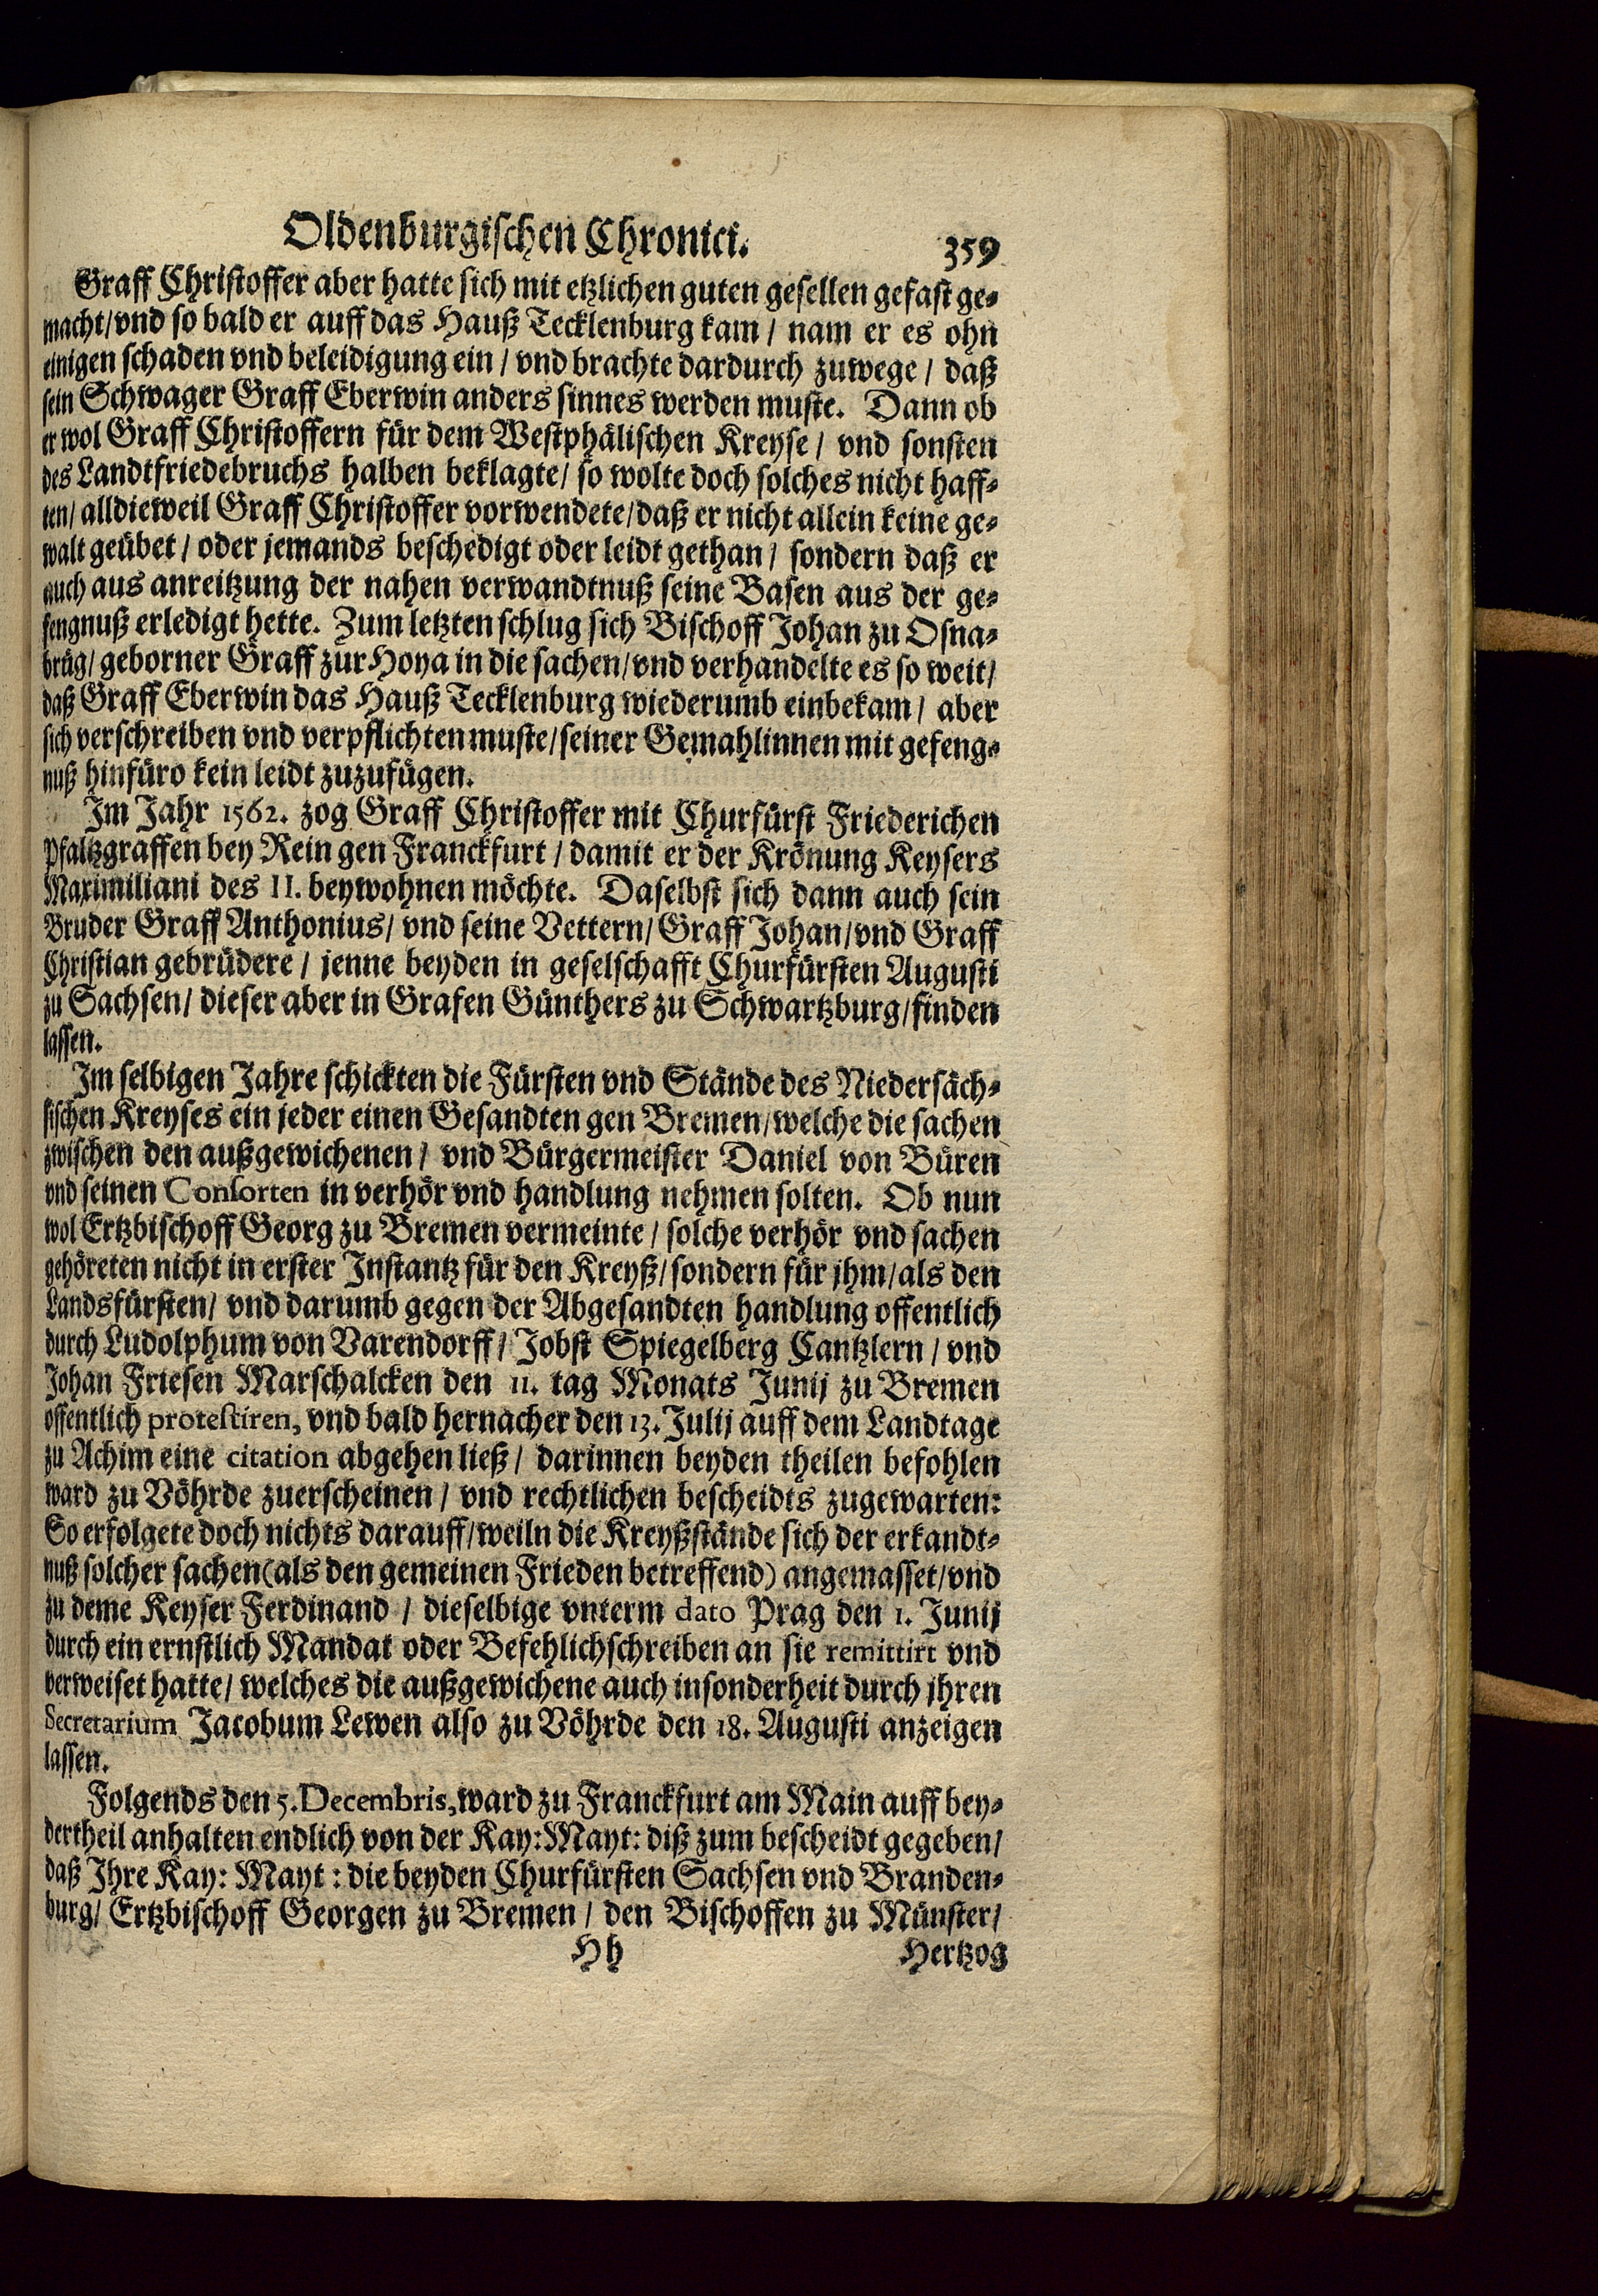 Oldenburgischen Chronici. 359
Graff Christoffer aber hatte sich mit etzlichen guten gesellen gefast ge-
macht/ vnd so bald er auff das Hauß Tecklenburg kam / nam er es ohn
einigen schaden vnd beleidigung ein / vnd brachte dardurch zuwege / daß
sein Schwager Graff Eberwin anders sinnes werden muste. Dann ob
er wol Graff Christoffern für dem Westphälischen Kreyse / vnd sonsten
des Landtfriedebruchs halben beklagte/ so wolte doch solches nicht haff-
ten/ alldieweil Graff Christoffer vorwendete/ daß er nicht allein keine ge-
walt geübet / oder jemands beschedigt oder leidt gethan / sondern daß er
auch aus anreitzung der nahen verwandtnuß seine Basen aus der ge-
fengnuß erledigt hette. Zum letzten schlug sich Bischoff Johan zu Osna-
brüg/ geborner Graff zur Hoya in die sachen/ vnd verhandelte es so weit/
daß Graff Eberwin das Hauß Tecklenburg wiederumb einbekam / aber
sich verschreiben vnd verpflichten muste/ seiner Gemahlinnen mit gefeng-
nuß hinfüro kein leidt zuzufügen.
Im Jahr 1562. zog Graff Christoffer mit Churfürst Friederichen
Pfaltzgraffen bey Rein gen Franckfurt / damit er der Krönung Keysers
Maximiliani des II. beywohnen möchte. Daselbst sich dann auch sein
Bruder Graff Anthonius/ vnd seine Vettern/ Graff Johan/ vnd Graff
Christian gebrüdere / jenne beyden in geselschafft Churfürsten Augusti
zu Sachsen/ dieser aber in Grafen Günthers zu Schwartzburg/ finden
lassen.
Im selbigen Jahre schickten die Fürsten vnd Stände des Niedersäch-
sischen Kreyses ein jeder einen Gesandten gen Bremen/ welche die sachen
zwischen den außgewichenen / vnd Bürgermeister Daniel von Büren
vnd seinen Consorten in verhör vnd handlung nehmen solten. Ob nun
wol Ertzbischoff Georg zu Bremen vermeinte / solche verhör vnd sachen
gehöreten nicht in erster Instantz für den Kreyß/ sondern für jhm/ als den
Landsfürsten/ vnd darumb gegen der Abgesandten handlung offentlich
durch Ludolphum von Varendorff / Jobst Spiegelberg Cantzlern / vnd
Johan Friesen Marschalcken den 11. tag Monats Junij zu Bremen
offentlich protestiren, vnd bald hernacher den 13. Julij auff dem Landtage
zu Achim eine citation abgehen ließ / darinnen beyden theilen befohlen
ward zu Vöhrde zuerscheinen / vnd rechtlichen bescheidts zugewarten:
So erfolgete doch nichts darauff/ weiln die Kreyßstände sich der erkandt-
nuß solcher sachen (als den gemeinen Frieden betreffend) angemasset/ vnd
zu deme Keyser Ferdinand / dieselbige vnterm dato Prag den 1. Junij
durch ein ernstlich Mandat oder Befehlichschreiben an sie remittirt vnd
verweiset hatte/ welches die außgewichene auch insonderheit durch jhren
Secretarium Jacobum Lewen also zu Vöhrde den 18. Augusti anzeigen
lassen.
Folgends den 5. Decembris, ward zu Franckfurt am Main auff bey-
dertheil anhalten endlich von der Kay: Mayt: diß zum bescheidt gegeben/
daß Ihre Kay: Mayt: die beyden Churfürsten Sachsen vnd Branden-
burg/ Ertzbischoff Georgen zu Bremen / den Bischoffen zu Münster/
Hh Hertzog